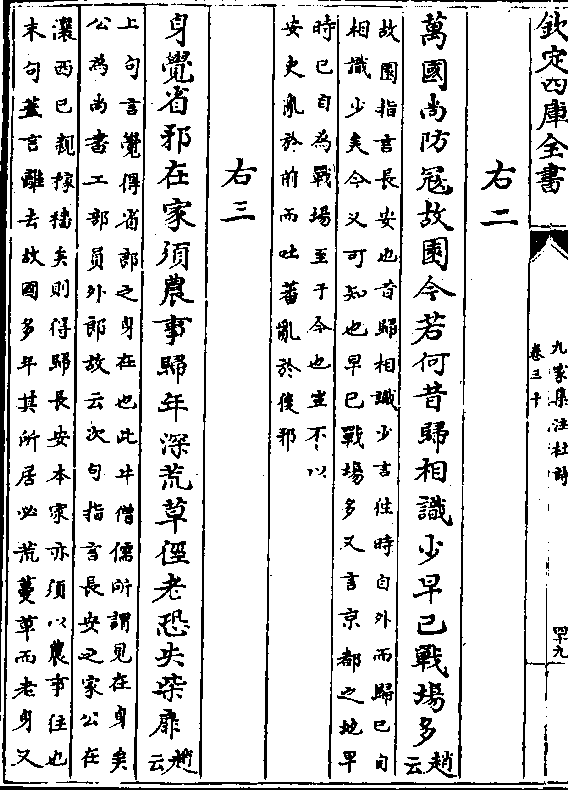 欽定四庫全書
九家集注杜詩
卷三十
四九
右二
萬國尚防冦故園今若何昔歸相識少早已戰場多趙云
故園指言長安也昔歸相識少言往時自外而歸已自
相識少矣今又可知也早已戰場多又言京都之地早
時已自為戰場至于今也豈不以
安史亂於前而吐蕃亂於後邪
右三
身覺省郎在家須農事歸年深荒草徑老恐失柴扉趙云
上句言覺得省郎之身在也此牛僧儒所謂見在身矣
公為尚書工部員外郎故云次句指言長安之家公在
瀼西已親稼穡矣則得歸長安本家亦須以農事往也
末句蓋言離去故國多年其所居必荒蔓草而老身又